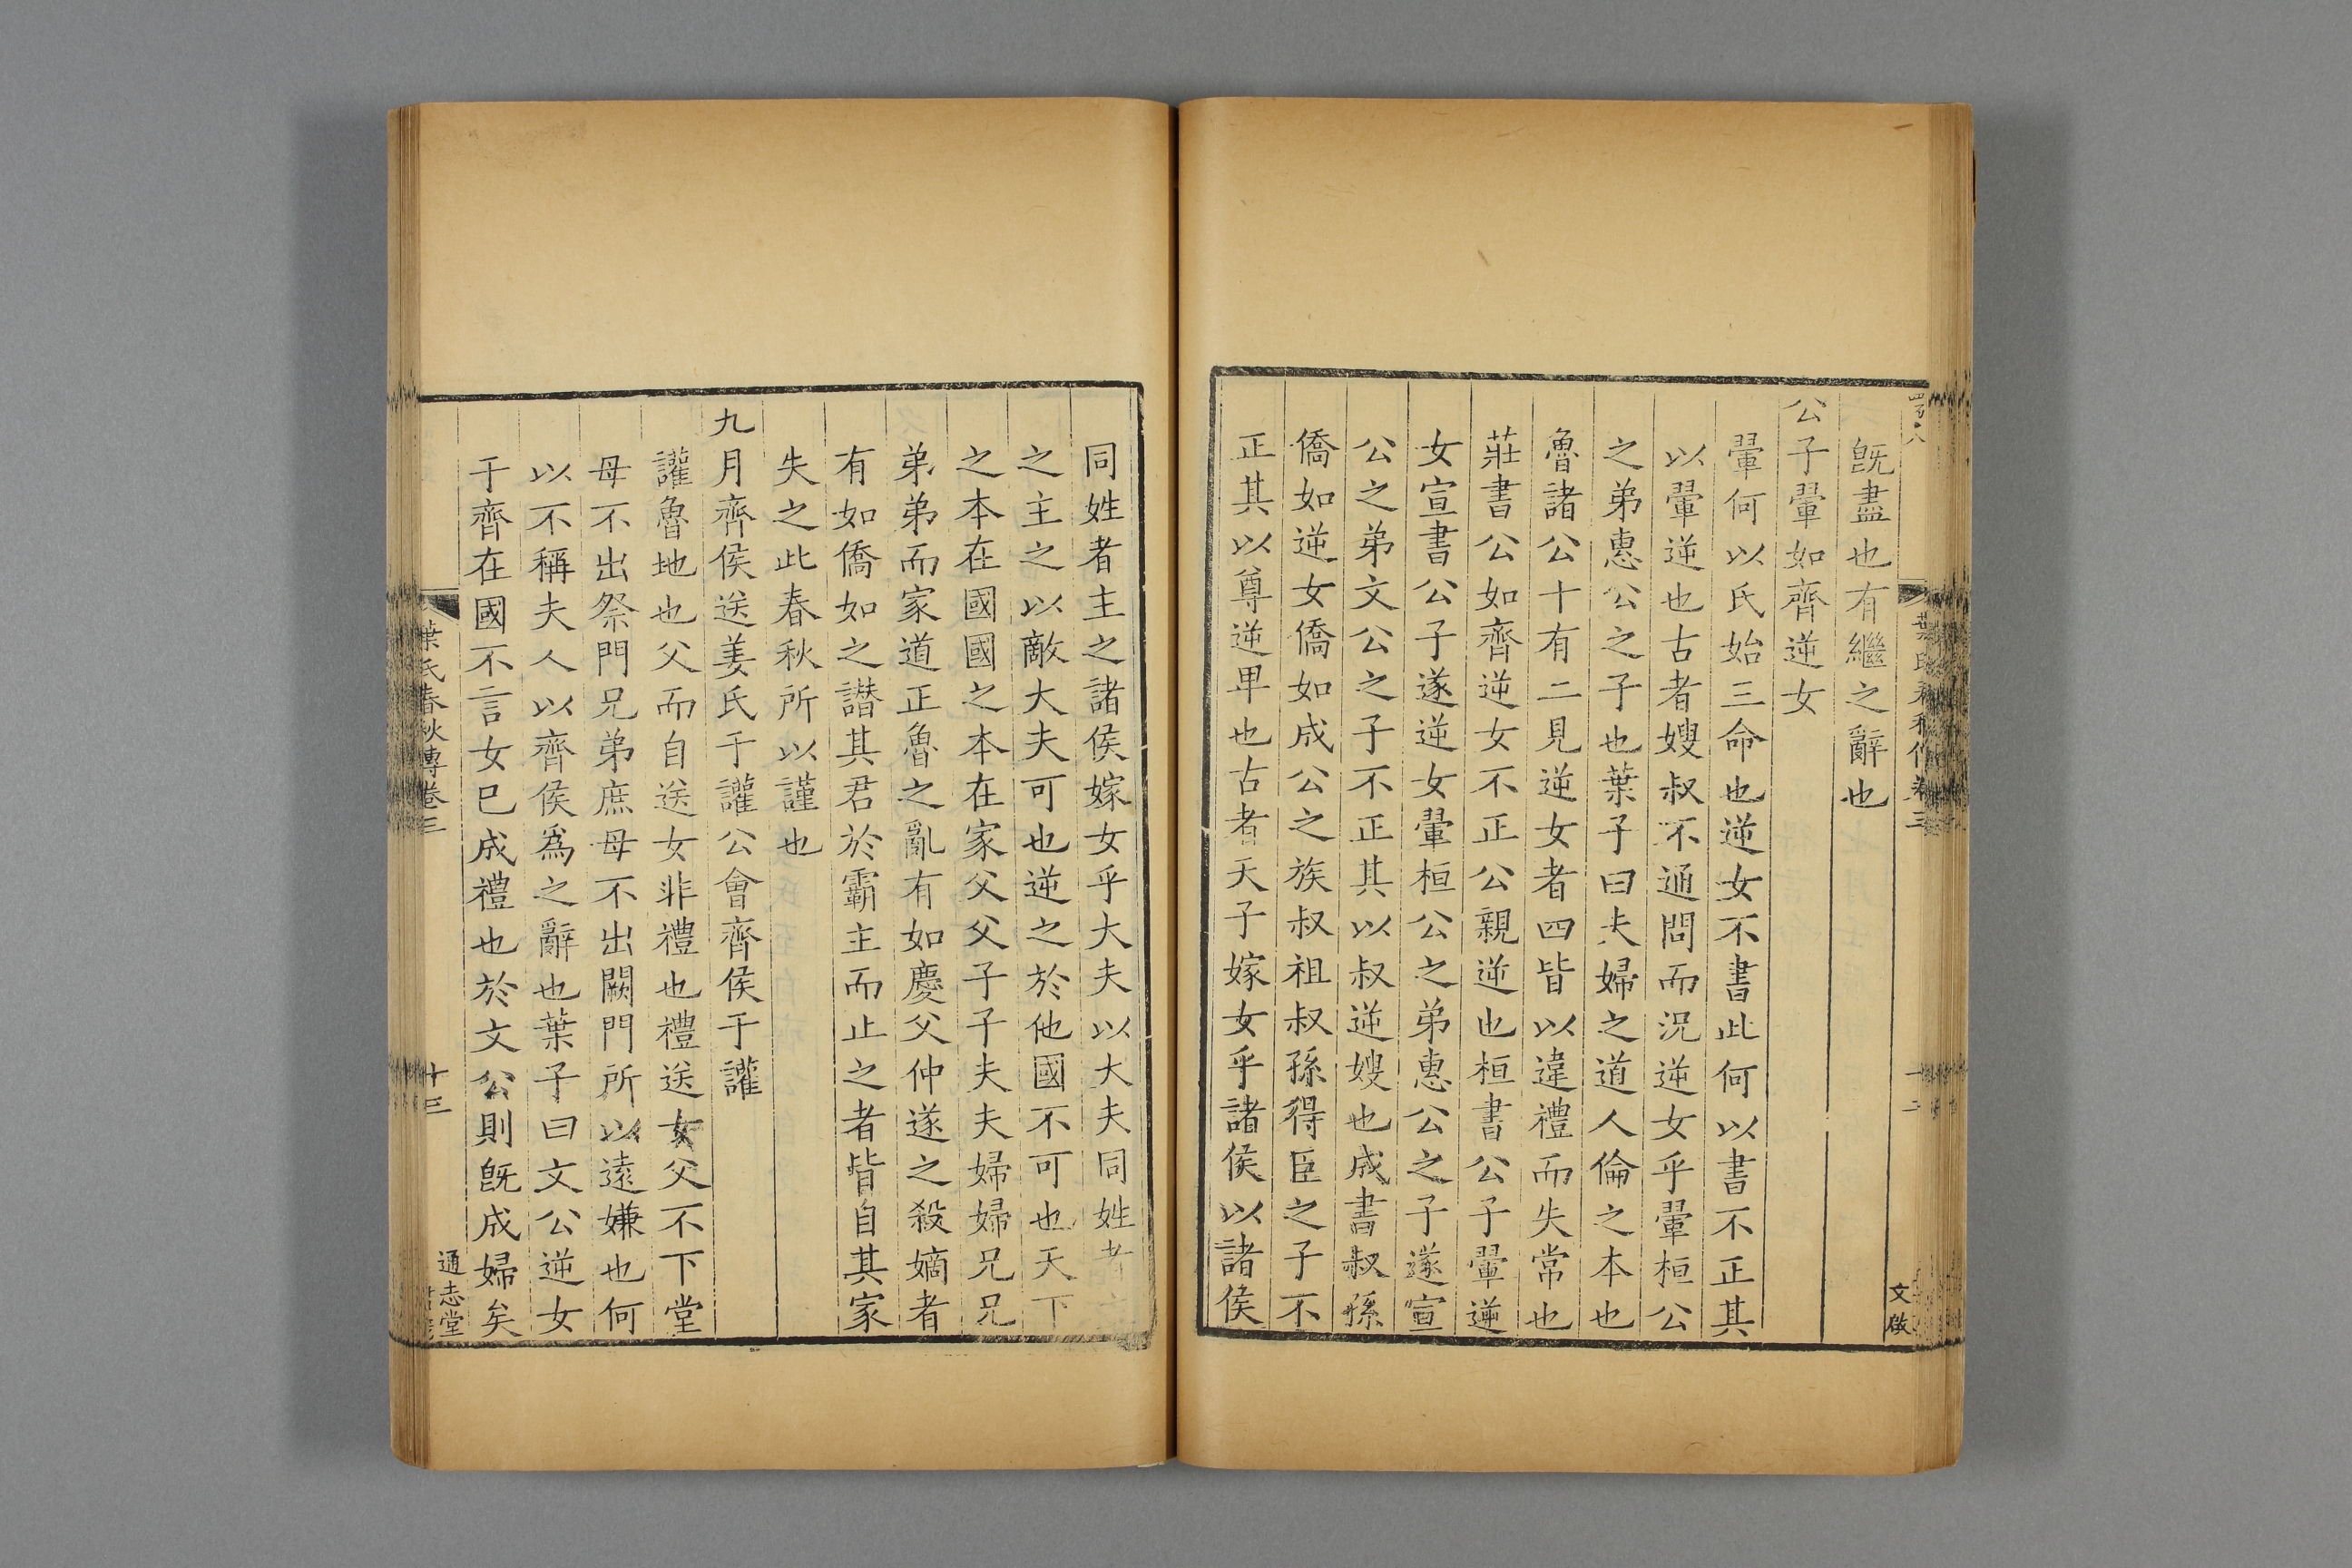 既盡也有繼之辭也
公子翬如齊逆女
翬何以氏始三命也逆女不書此何以書不正其
以翬逆也古者嫂叔不通問而況逆女乎翬桓公
之弟惠公之子也葉子曰夫婦之道人倫之本也
魯諸公十有二見逆女者四皆以違禮而失常也
莊書公如齊逆女不正公親逆也桓書公子翬逆
女宣書公子遂逆女翬桓公之弟惠公之子遂宣
公之弟文公之子不正其以叔逆嫂也成書叔孫
僑如逆女僑如成公之族叔祖叔孫得臣之子不
正其以尊逆卑也古者天子嫁女乎諸侯以諸侯
同姓者主之諸侯嫁女乎大夫以大夫同姓者
之主之以敵大夫可也逆之於他國不可也天下
之本在國國之本在家父父子子夫夫婦婦兄兄
弟弟而家道正魯之亂有如慶父仲遂之殺嫡者
有如僑如之譖其君於霸主而止之者皆自其家
失之此春秋所以謹也
九月齊侯送姜氏于讙公會齊侯于讙
讙魯地也父而自送女非禮也禮送女父不下堂
母不出祭門兄弟庶母不出闕門所以遠嫌也何
以不稱夫人以齊侯爲之辭也葉子曰文公逆女
于齊在國不言女已成禮也於文公則既成婦矣
葉氏春秋傳卷三
十三
通志堂